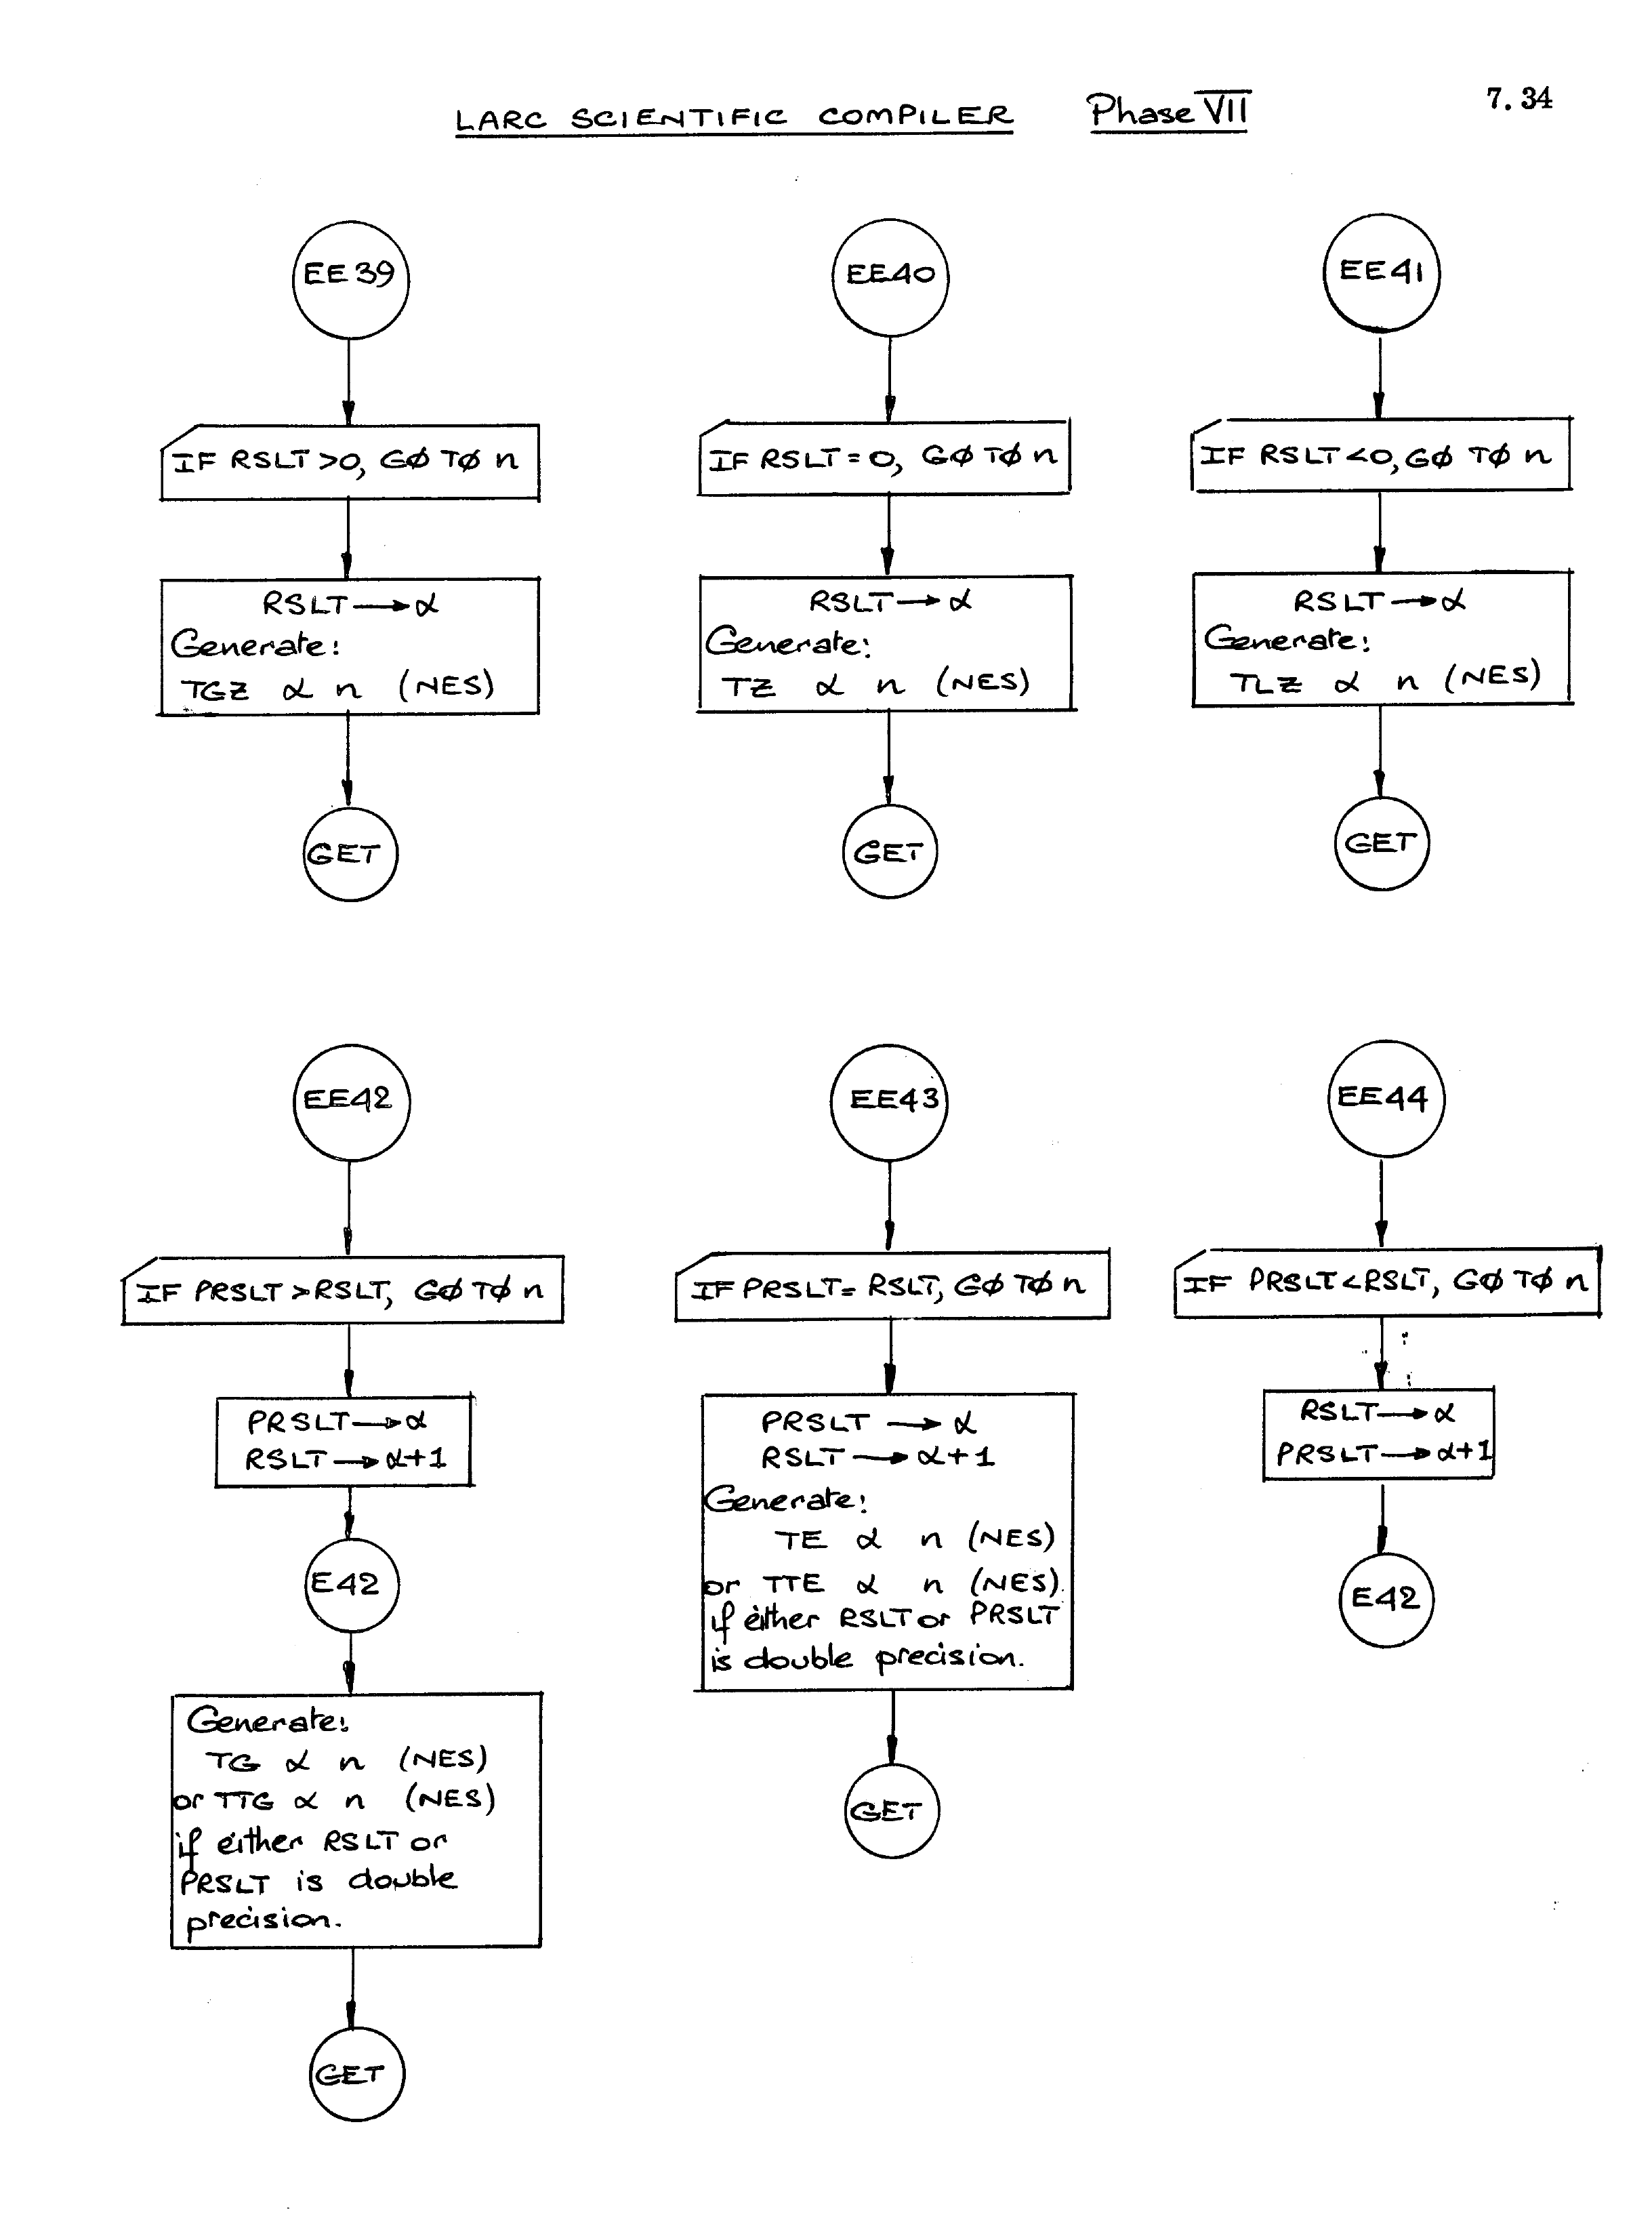 LARC SCIENTIFIC COMPILER Phase VII
7.34
EE39
IF RSLT >0, GØ TØ n
RSLT → α
Generate:
TGZ α n (NES)
GET
EE40
IF RSLT = 0, GØ TØ n
RSLT → α
Generate:
TZ α n (NES)
GET
EE41
IF RSLT <0, GØ TØ n
RSLT → α
Generate:
TLZ α n (NES)
GET
EE42
IF PRSLT > RSLT, GØ TØ n
PRSLT → α
RSLT → α+1
E42
Generate:
TG α n (NES)
or TTG α n (NES)
if either RSLT or
PRSLT is double
precision.
GET
EE43
IF PRSLT = RSLT, GØ TØ n
PRSLT → α
RSLT → α+1
Generate:
TE α n (NES)
or TTE α n (NES).
if either RSLT or PRSLT
is double precision.
GET
EE44
IF PRSLT < RSLT, GØ TØ n
RSLT → α
PRSLT → α+1
E42